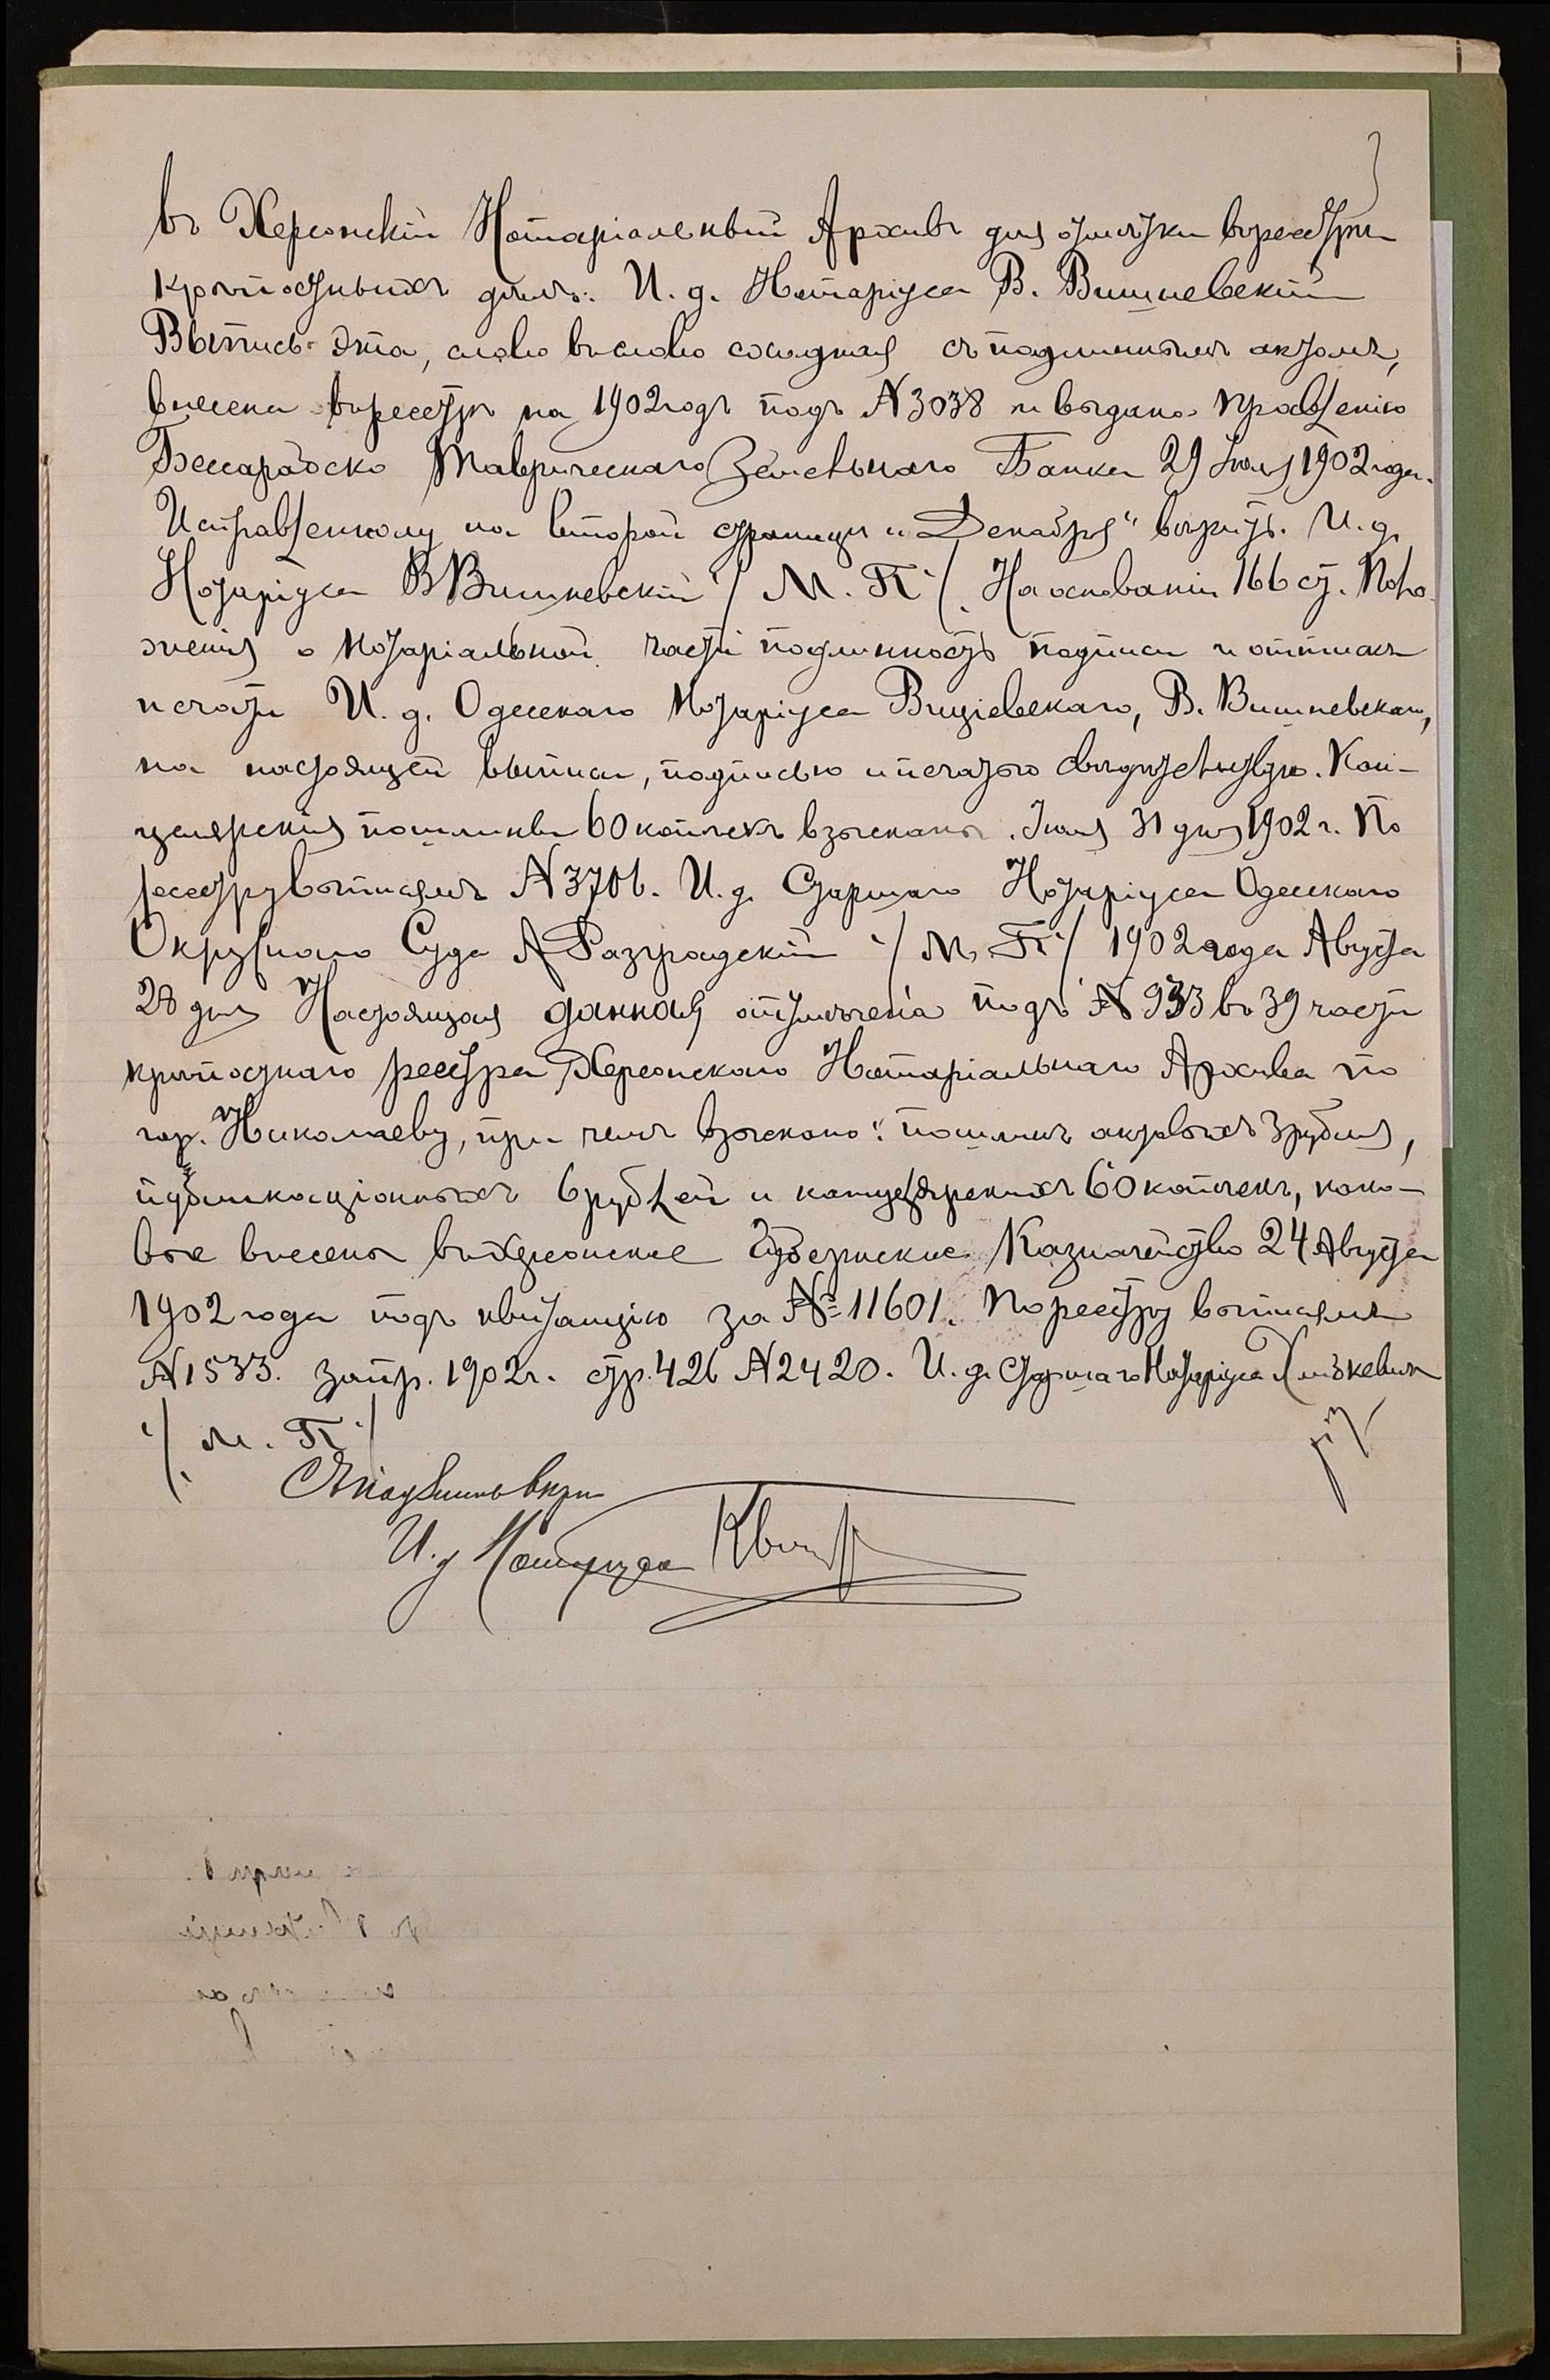 въ Херсонскій Нотаріальный Архивъ для отмѣтки въ реестрѣ
крѣпостныхъ дѣлъ. И. д. Нотаріуса В. Вишневскій
Выпись эта, слово въ слово сходная съ подлиннымъ актомъ,
внесена въ реестръ на 1902 годъ подъ N 3038 и выдана Правленію
Бессарабско Таврическаго Земельнаго Банка 29 Іюля 1902 года.
Исправленному на второй страницѣ „Декабря" вѣрить. И. д.
Нотаріуса В Вишневскій /М. П./ На основаніи 166 ст. Поло-
женія о Нотаріальной части подлинность подписи и оттиска
печати И. д. Одесскаго Нотаріуса В. Вишневскаго,
на настоящей выписи, подписью и печатью свидѣтельствую. Кан-
целярскія пошлины 60 копѣекъ взысканы. Іюля 31 дня 1902 г. По
реестру выписямъ N 3706. И. д. Старшаго Нотаріуса Одесскаго
Окружнаго Суда А Разградскій /М. П./ 1902 года Августа
28 дня Настоящая данная отмѣчена подъ N 933 въ 39 части
крѣпостнаго реестра Херсонскаго Нотаріальнаго Архива по
гор. Николаеву, при чемъ взыскано: пошлинъ актовыхъ 3 рубля,
публикаціонныхъ 6 рублей и канцелярскихъ 60 копѣекъ, како-
вые внесены въ Херсонское Губернское Казначейство 24 Августа
1902 года подъ квитанцію за № 11601. По реестру выписямъ
N 1533. запр. 1902 г. стр. 426 N 2420. И. д. Старшаго Нотаріуса
/М. П./
Съ подлиннымъ вѣрно
И. д Нотаріуса